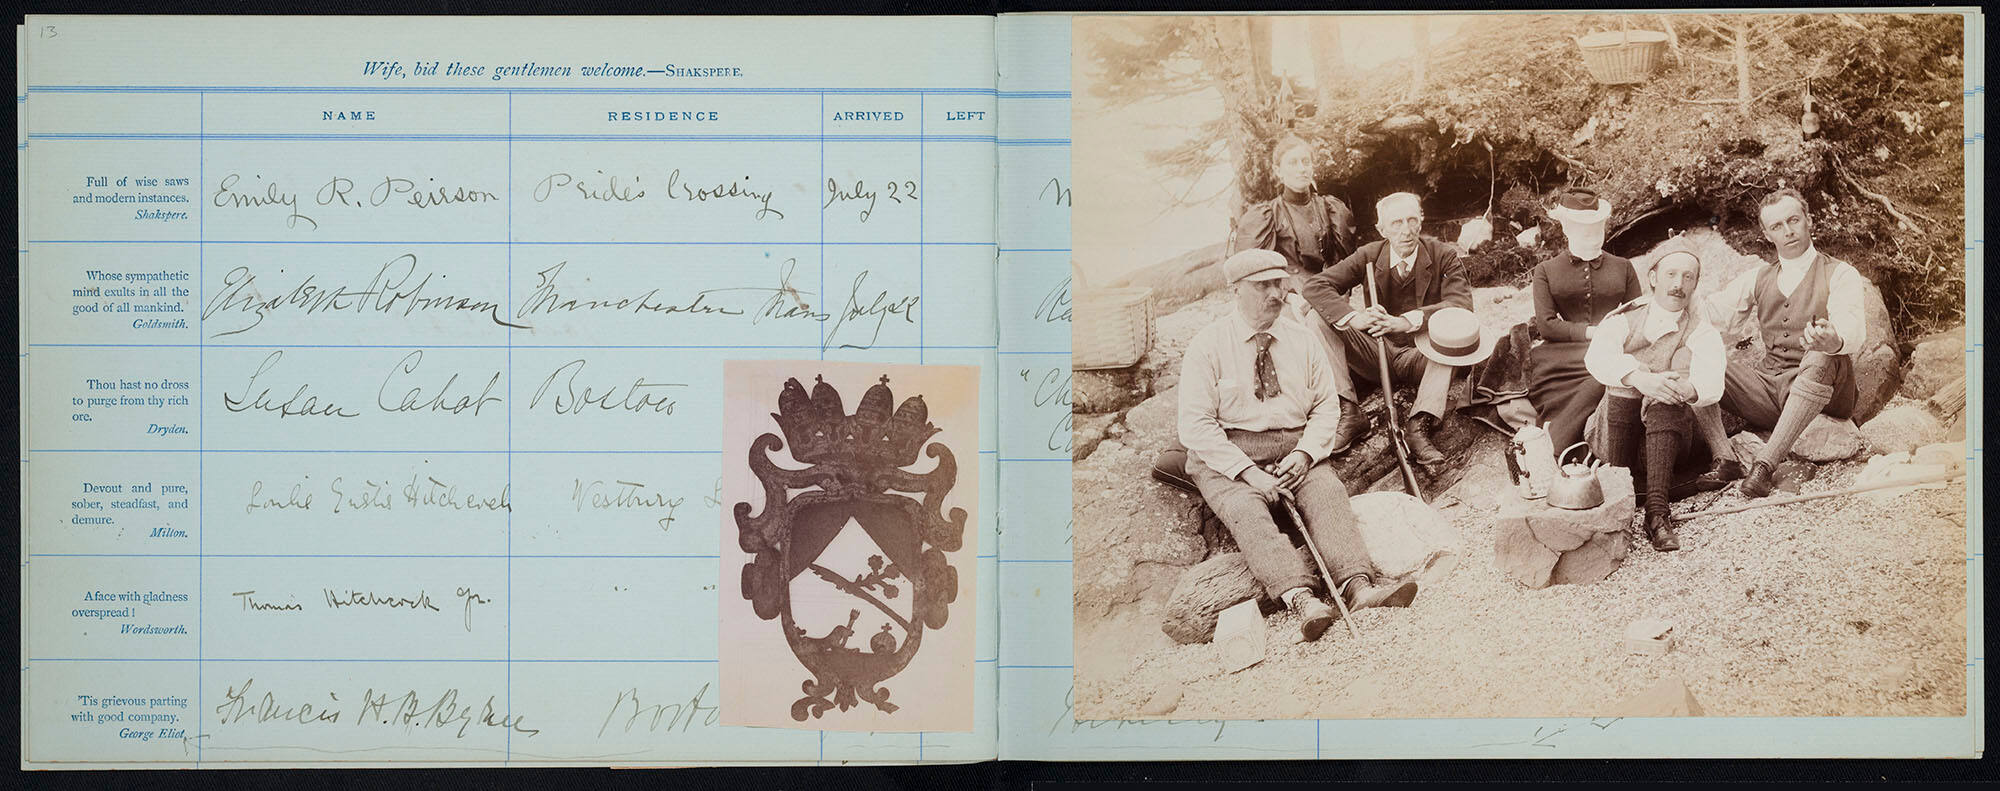 13
Wife, bid these gentlemen welcome.—SHAKSPERE.
NAME RESIDENCE ARRIVED LEFT
Full of wise saws
and modern instances.
Shakspere.
Emily R. Peirson Pride's Crossing July 22
Whose sympathetic
mind exults in all the
good of all mankind.
Goldsmith.
Elizabeth Robinson Manchester Mass July 22
Thou hast no dross
to purge from thy rich
ore.
Dryden.
Susan Cabot Boston
Devout and pure,
sober, steadfast, and
demure.
Milton.
Hitchcock Westbury L
A face with gladness
overspread!
Wordsworth.
Thomas Hitchcock Jr. " "
'Tis grievous parting
with good company.
George Eliot.
Francis H. B. Byrne Bosto